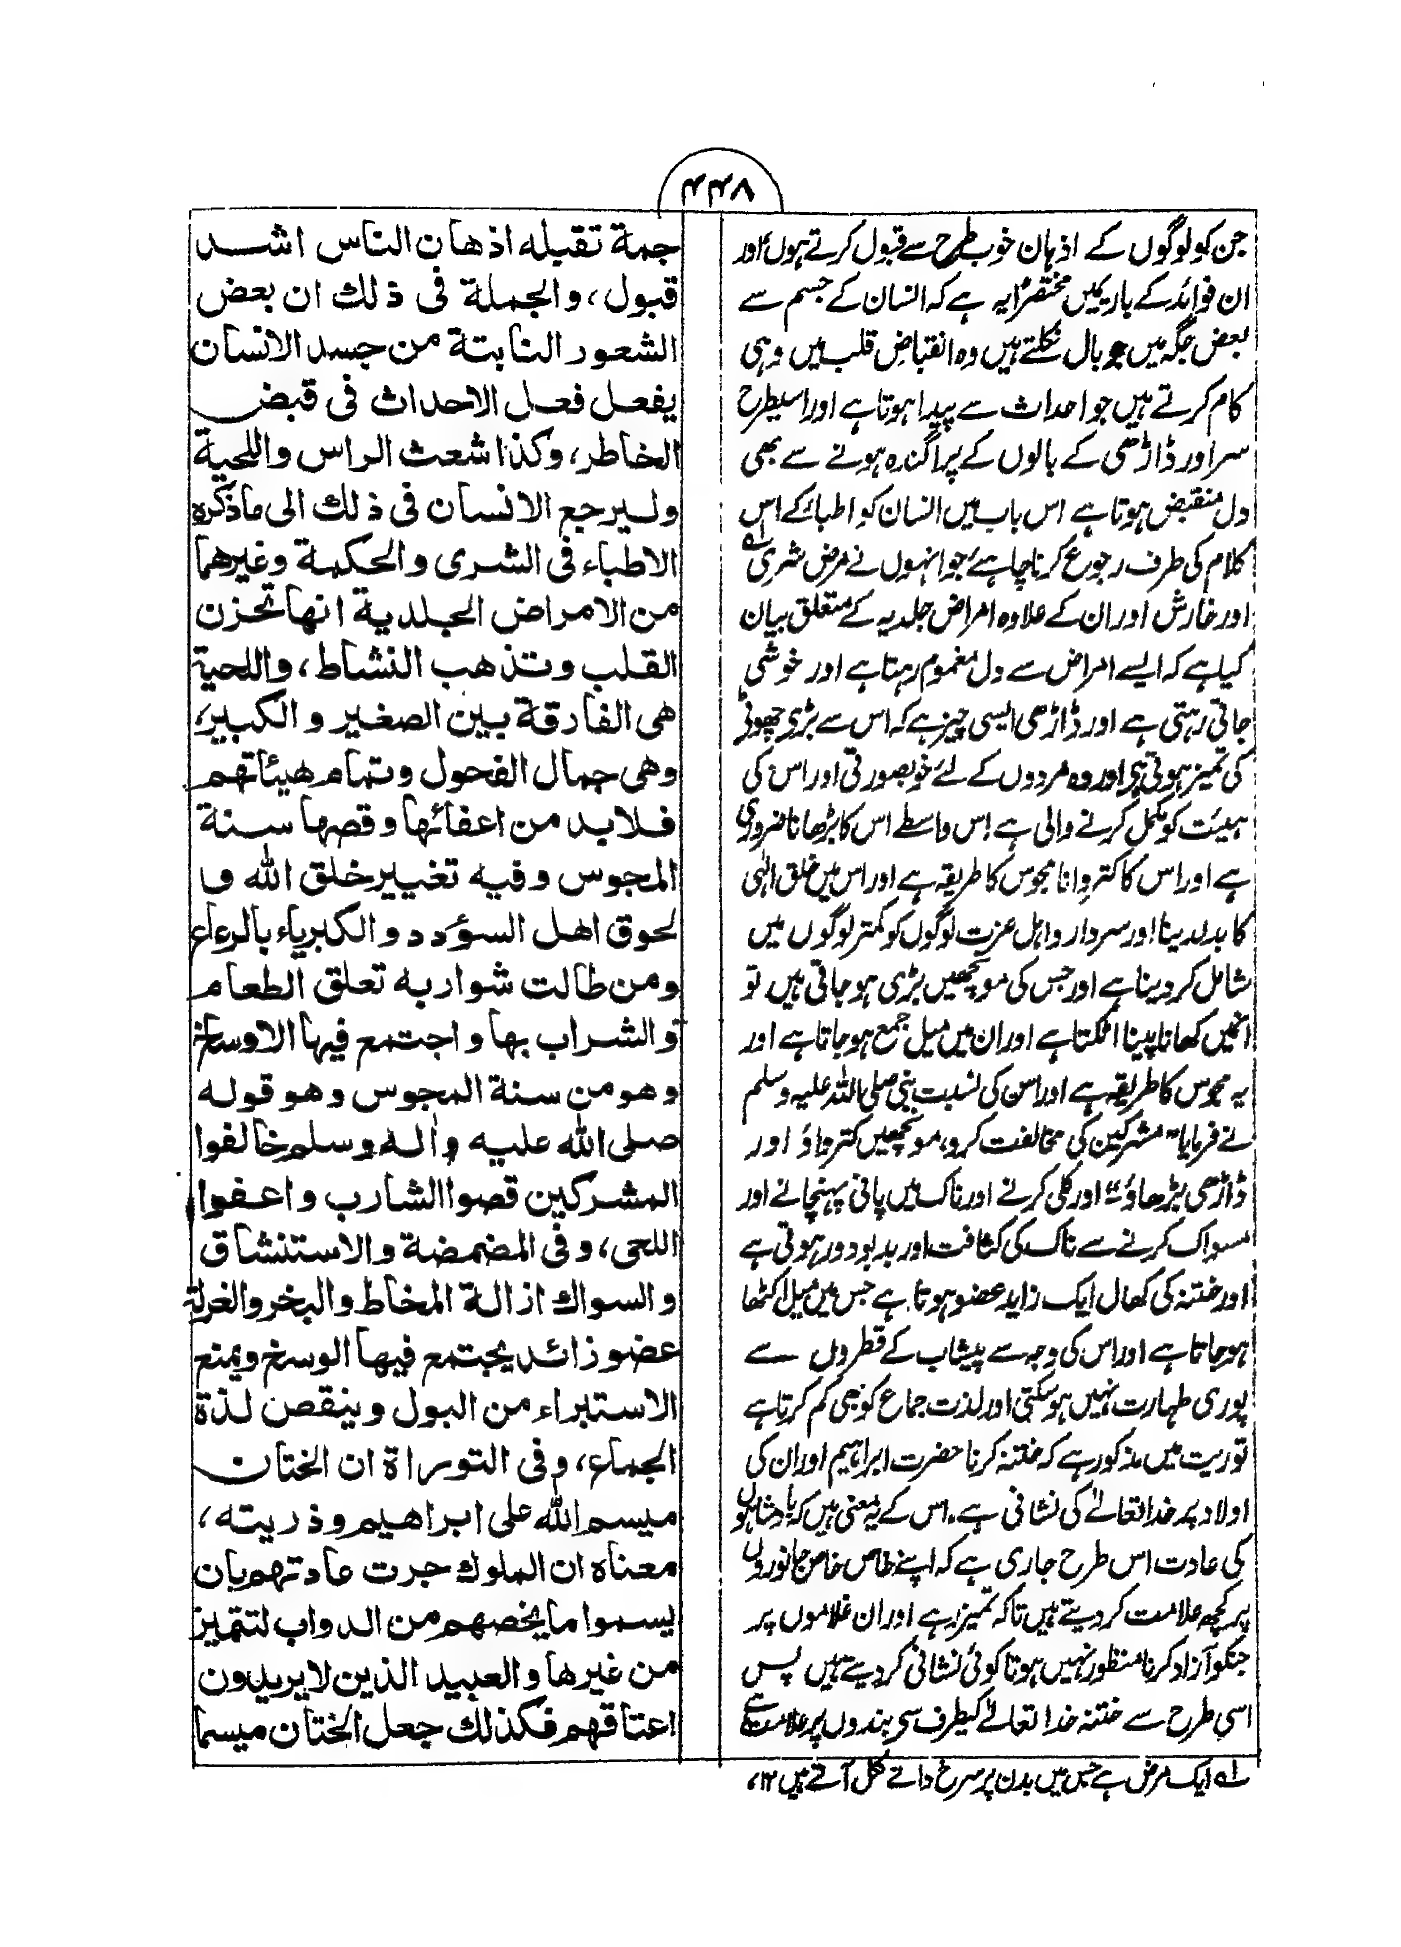 ۴۴۷
جن کو لوگوں کے اذہان خوب طرح سے قبول کرتے ہوں اور
ان فوائد کے بارےمیں مختصراً یہ ہے کہ انسان کے جسم سے
بعض جگہ میں جو بال نکلتے ہیں وہ انقباض قلب میں وہی
کام کرتے ہیں جو احداث سے پیدا ہوتا ہے اور اسیطرح
سر اور ڈاڑھی کے بالوں کے پراگندہ ہونے سے بھی
دل منقبض ہوتا ہے اس باب میں انسان کو اطباء کے اس
کلام کی طرف رجوع کرنا چاہئے جو انہوں نے مرض شری
اور خارش اور ان کے علاوہ امراض جلدیہ کے متعلق بیان
کیا ہے کہ ایسے امراض سے دل مغموم رہتا ہے اور خوشی
جاتی رہتی ہے اور ڈاڑھی ایسی چیز ہے کہ اس سے بڑی چھوٹی
کی تمیز ہوتی ہے اور وہ مردوں کے لئے خوبصورتی اور اس کی
ہیئت کو مکمل کرنے والی ہے اس واسطے اس کا بڑھانا ضروری
ہے اور اس کا کتروانا مجوس کا طریقہ ہے اور اس میں خلق الٰہی
کا بدل دینا اور سردار و اہل عزت لوگوں کو کمتر لوگوں میں
شامل کر دینا ہے اور جس کی مونچھیں بڑی ہو جاتی ہیں تو
انمیں کھانا پینا اٹکتا ہے اور ان میں میل جمع ہو جاتا ہے اور
یہ مجوس کا طریقہ ہے اور اس کی نسبت نبی صلی اللہ علیہ وسلم
نے فرمایا "مشرکین کی مخالفت کرو، مونچھیں کترواؤ اور
ڈاڑھی بڑھاؤ" اور کلی کرنے اور ناک میں پانی پہنچانے اور
مسواک کرنے سے ناک کی کثافت اور بدبو دور ہوتی ہے
اور ختنہ کی کھال ایک زاید عضو ہوتا ہے جس میں میل اکٹھا
ہو جاتا ہے اور اس کی وجہ سے پیشاب کے قطروں سے
پوری طہارت نہیں ہوسکتی اور لذت جماع کو بھی کم کرتا ہے
توریت میں مذکور ہے کہ ختنہ کرنا حضرت ابراہیم اور ان کی
اولاد پر خدا تعالےٰ کی نشانی ہے۔ اس کے یہ معنی ہیں کہ بادشاہوں
کی عادت اس طرح جاری ہے کہ اپنے خاص خاص جانوروں
پر کچھ علامت کردیتے ہیں تاکہ تمیز رہے اور ان غلاموں پر
جنکو آزاد کرنا منظور نہیں ہوتا کوئی نشانی کردیتے ہیں پس
اسی طرح سے ختنہ خدا تعالےٰ کیطرف سے بندوں پر علامت ہے
لہ ایک مرض ہے جس میں بدن پر سرخ دانے نکل آتے ہیں ۱۲،
جمة تقبله اذهان الناس اشد
قبول، والجملة فى ذلك ان بعض
الشعور النابتة من جسد الانسان
يفعل فعل الاحداث فى قبض
الخاطر، وكذا شعث الراس واللحية
وليرجع الانسان فى ذلك الى ماذكره
الاطباء فى الشرى والحكمة وغيرهما
من الامراض الجلدية انها تحزن
القلب وتذهب النشاط، واللحية
هى الفارقة بين الصغير والكبير،
وهى جمال الفحول وتمام هيئاتهم
فلابد من اعفائها وقصها سنة
المجوس وفيه تغيير خلق الله و
لحوق اهل السؤدد والكبرياء بالرعاع
ومن طالت شواربه تعلق الطعام
والشراب بها واجتمع فيها الاوساخ
وهو من سنة المجوس وهو قوله
صلى الله عليه وآله وسلم خالفوا
المشركين قصوا الشارب واعفوا
اللحى، وفى المضمضة والاستنشاق
والسواك ازالة المخاط والبخر والغرلة
عضو زائد يجتمع فيها الوسخ ويمنع
الاستبراء من البول وينقص لذة
الجماع، وفى التوراة ان الختان
ميسم الله على ابراهيم وذريته،
معناه ان الملوك جرت عادتهم بان
يسموا ما يخصهم من الدواب لتتميز
من غيرها والعبيد الذين لايريدون
اعتاقهم فكذلك جعل الختان ميسما